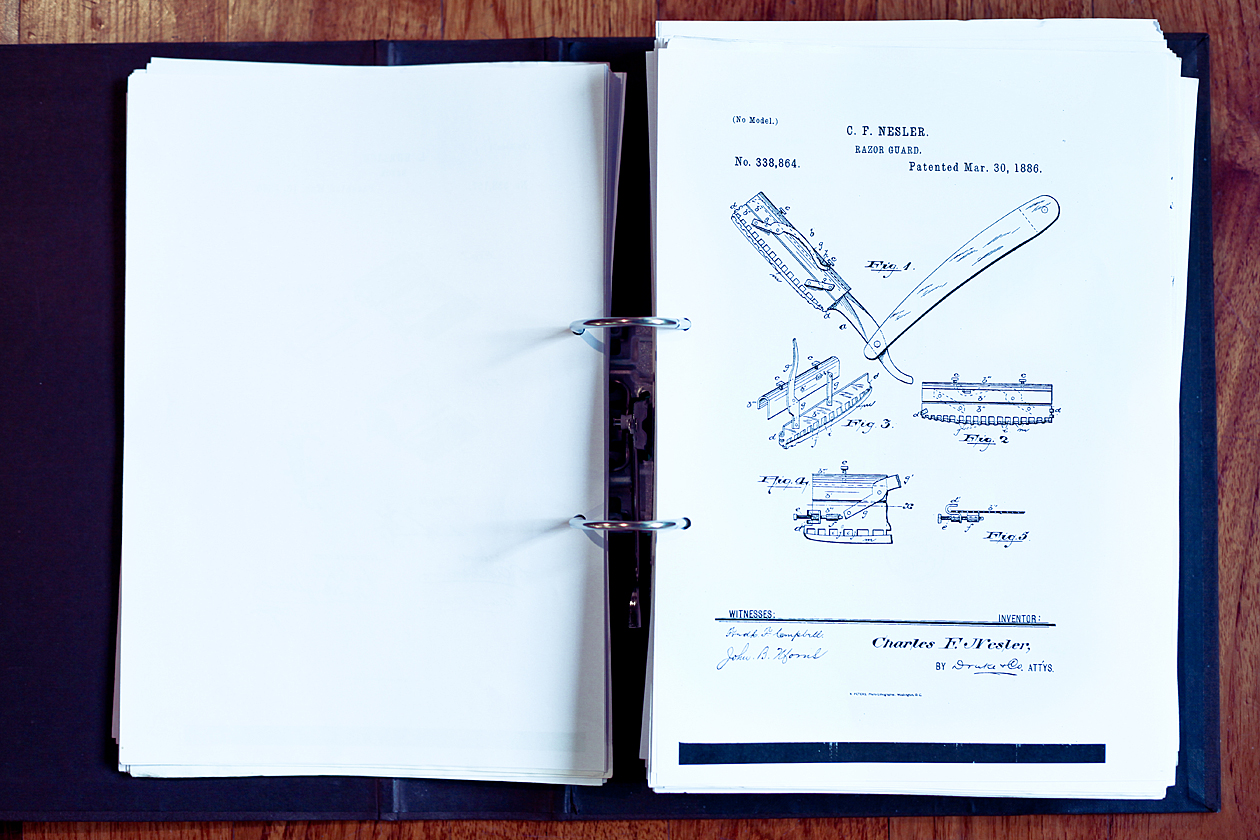 (No Model.)
C. F. NESLER.
RAZOR GUARD.
No. 338,864.
Patented Mar. 30, 1886.
Fig. 1.
Fig. 3.
Fig. 2
Fig. 4,
Fig. 5
WITNESSES:
INVENTOR:
Campbell
John B.
Charles F. Nesler,
BY Drake & Co. ATT'YS.
N. PETERS, Photo-Lithographer, Washington, D. C.